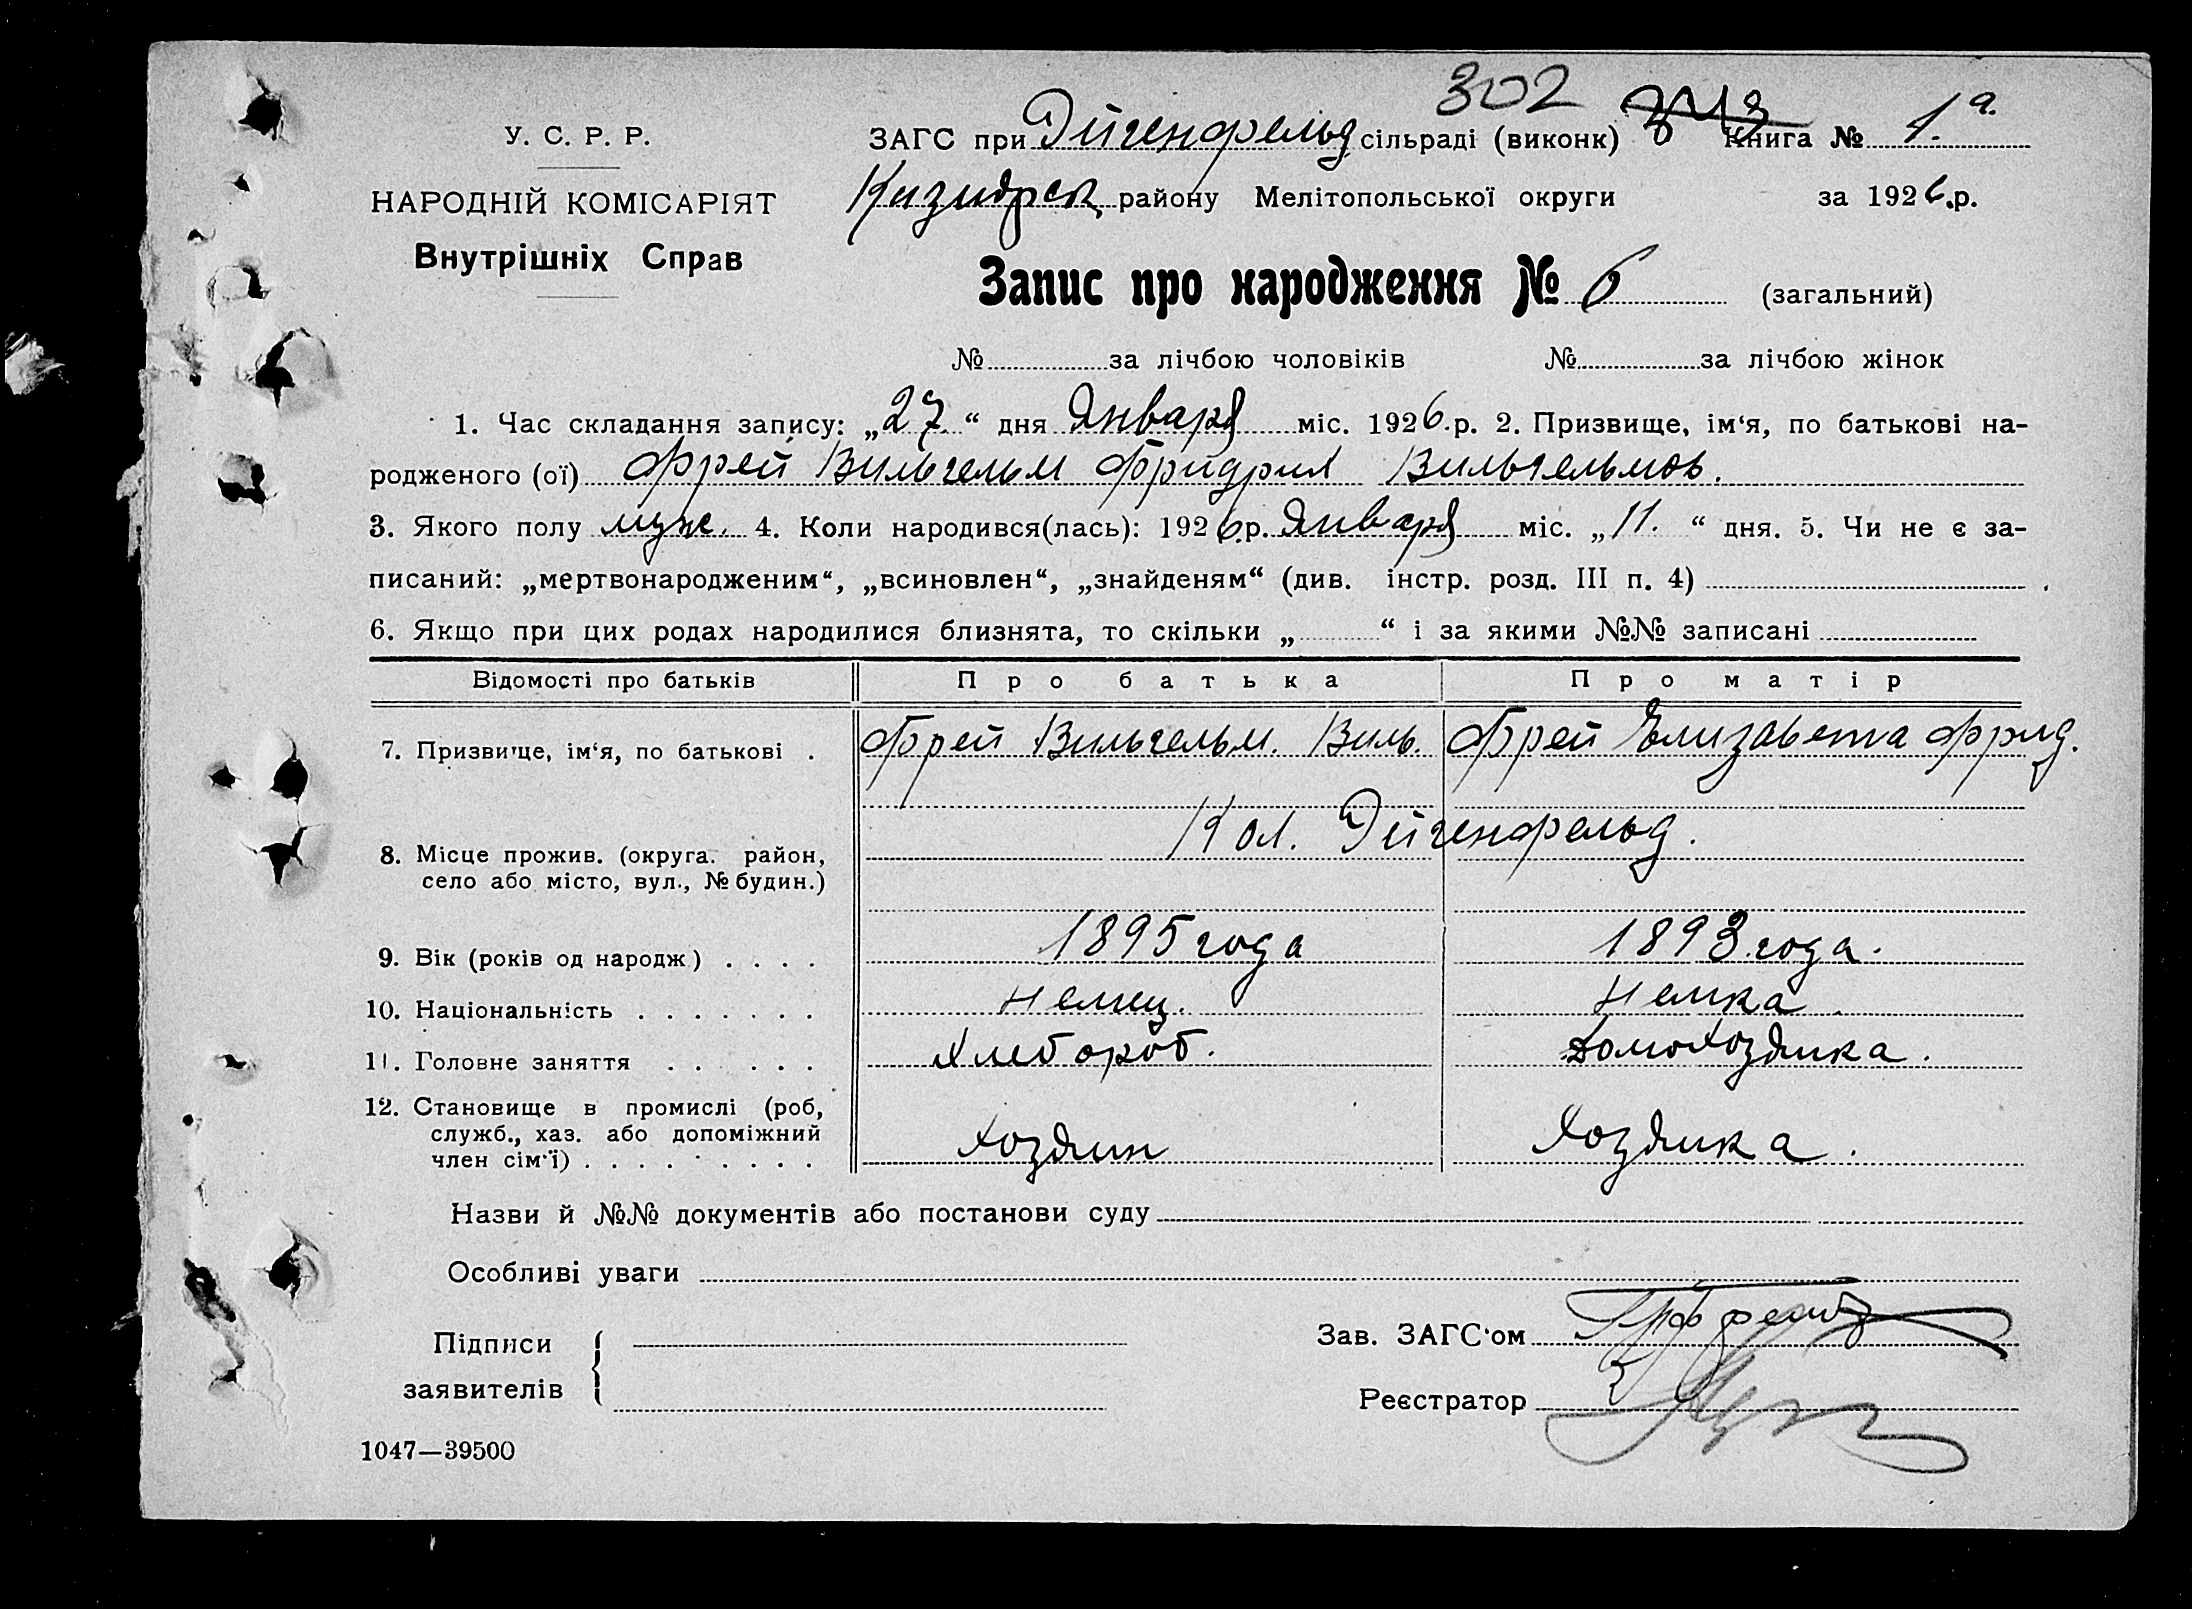 302
У. С. Р. Р. ЗАГС при Эйгенфельд сільраді (виконк) Книга № 1.а.
НАРОДНІЙ КОМІСАРІЯТ району Мелітопольської округи за 1926.р.
Внутрішніх Справ
Запис про народження № 6 (загальний)
№ за лічбою чоловіків № за лічбою жінок
1. Час складання запису: „27.“ дня Января міс. 1926.р. 2. Призвище, ім‘я, по батькові на-
родженого (ої) Фрей Вильгельм Фридрих Вильгельмов.
3. Якого полу муж. 4. Коли народився(лась): 1926.р. Января міс. „11.“ дня. 5. Чи не є за-
писаний: „мертвонародженим“, „всиновлен“, „знайденям“ (див. інстр. розд. III п. 4) .
6. Якщо при цих родах народилися близнята, то скільки „ “ і за якими №№ записані
Відомості про батьків Про батька Про матір
7. Призвище, ім‘я, по батькові . Фрей Вильгельм. Виль. Фрей Елизавета Фрид.
Кол. Эйгенфельд.
8. Місце прожив. (округа. район,
село або місто, вул., № будин.)
9. Вік (років од народж) . . . . 1895 года 1893 года.
10. Національність . . . . . . . Немец. Немка.
11. Головне заняття . . . . . Хлебороб. Домохозяйка.
12. Становище в промислі (роб,
служб., хаз. або допоміжний Хозяин Хозяйка.
член сім‘ї) . . . . . . . . .
Назви й №№ документів або постанови суду
Особливі уваги
Підписи Зав. ЗАГС‘ом
заявителів Реєстратор
1047—39500